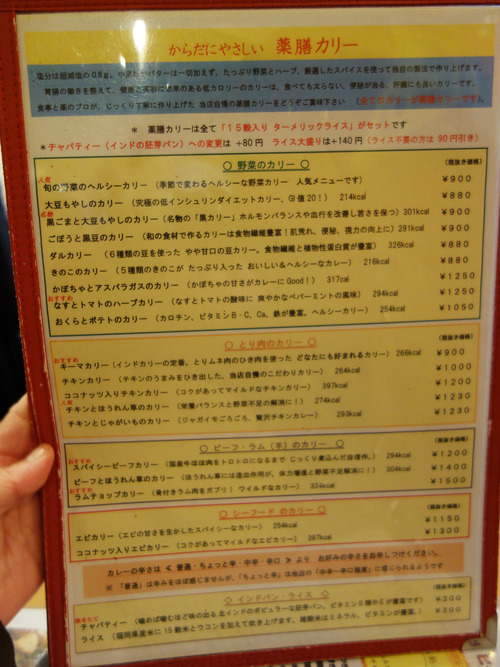 からだにやさしい 薬膳カリー
塩分は超減塩の0.8g。小麦粉やバターは一切加えず、たっぷり野菜とハーブ、厳選したスパイスを使って独自の製法で作り上げます。
胃腸の働きを整えて、健康と美容に効果のある低カロリーのカリーは、食べても太らない、便秘が治る、肝臓にも良いカリーです。
食事と薬のプロが、じっくり丁寧に作り上げた 当店自慢の薬膳カリーをどうぞご賞味下さい (全てのカリーが薬膳カリーです)。
* 薬膳カリーは全て「15穀入り ターメリックライス」がセットです
*チャパティー(インドの胚芽パン)への変更は +80円 ライス大盛りは+140円 (ライス不要の方は 90円引き)
○ 野菜のカリー ○ (税抜き価格)
人気
旬の野菜のヘルシーカリー (季節で変わるヘルシーな野菜カリー 人気メニューです) ¥900
大豆もやしのカリー (究極の低インシュリンダイエットカリー、GI値20!) 214kcal ¥880
名物
黒ごまと大豆もやしのカリー (名物の「黒カリー」ホルモンバランスや血行を改善し若さを保つ) 301kcal ¥900
ごぼうと黒豆のカリー (和の食材で作るカリーは食物繊維豊富!肌荒れ、便秘、視力の向上に) 281kcal ¥900
ダルカリー (6種類の豆を使った やや甘口の豆カリー。食物繊維と植物性蛋白質が豊富) 326kcal ¥880
きのこのカリー (5種類のきのこが たっぷり入った おいしい&ヘルシーなカレー) 216kcal ¥880
かぼちゃとアスパラガスのカリー (かぼちゃの甘さがカレーにGood!) 317cal ¥1250
おすすめ
なすとトマトのハーブカリー (なすとトマトの酸味に 爽やかなペパーミントの風味) 294kcal ¥1250
おくらとポテトのカリー (カロチン、ビタミンB・C、Ca、鉄が豊富。ヘルシーカリー) 254kcal ¥1050
○ とり肉のカリー ○ (税抜き価格)
おすすめ
キーマカリー(インドカリーの定番。とりムネ肉のひき肉を使った どなたにも好まれるカリー) 266kcal ¥900
チキンカリー (チキンのうまみをひき出した、当店自慢のこだわりカリー) 264kcal ¥1000
ココナッツ入りチキンカリー (コクがあってマイルドなチキンカリー) 397kcal ¥1200
人気
チキンとほうれん草のカリー (栄養バランスと野菜不足の解消に!) 274kcal ¥1230
チキンとじゃがいものカリー (ジャガイモごろごろ、贅沢チキンカレー) 293kcal ¥1230
○ ビーフ・ラム(羊)のカリー ○ (税抜き価格)
おすすめ
スパイシービーフカリー (国産牛ほほ肉をトロトロになるまで じっくり煮込んだ自信作。) 294kcal ¥1200
ビーフとほうれん草のカリー (ほうれん草には造血作用が。体力増進と野菜不足解消に!) 304kcal ¥1400
おすすめ
ラムチョップカリー (骨付きラム肉をガブリ! ワイルドなカリー) 334kcal ¥1500
○ シーフード のカリー ○ (税抜き価格)
エビカリー (エビの甘さを生かしたスパイシーなカリー) 254kcal ¥1150
ココナッツ入りエビカリー (コクがあってマイルドなエビカリー) 397kcal ¥1300
カレーの辛さは < 普通・ちょっと辛・中辛・辛口 > より お好みの辛さをお申し付けください。
※ 「普通」は辛みをほぼ感じませんが、「ちょっと辛」は他店の「中辛~辛口程度」に感じられるようです
○ インドパン・ライス ○ (税抜き価格)
焼きたて
チャパティー (噛めば噛むほど味の出る、北インドのポピュラーな胚芽パン。ビタミンB類やEが豊富です) ¥300
ライス (福岡県産米に15穀米とウコンを加えて炊き上げます。雑穀米はミネラル、ビタミンが豊富。) ¥300